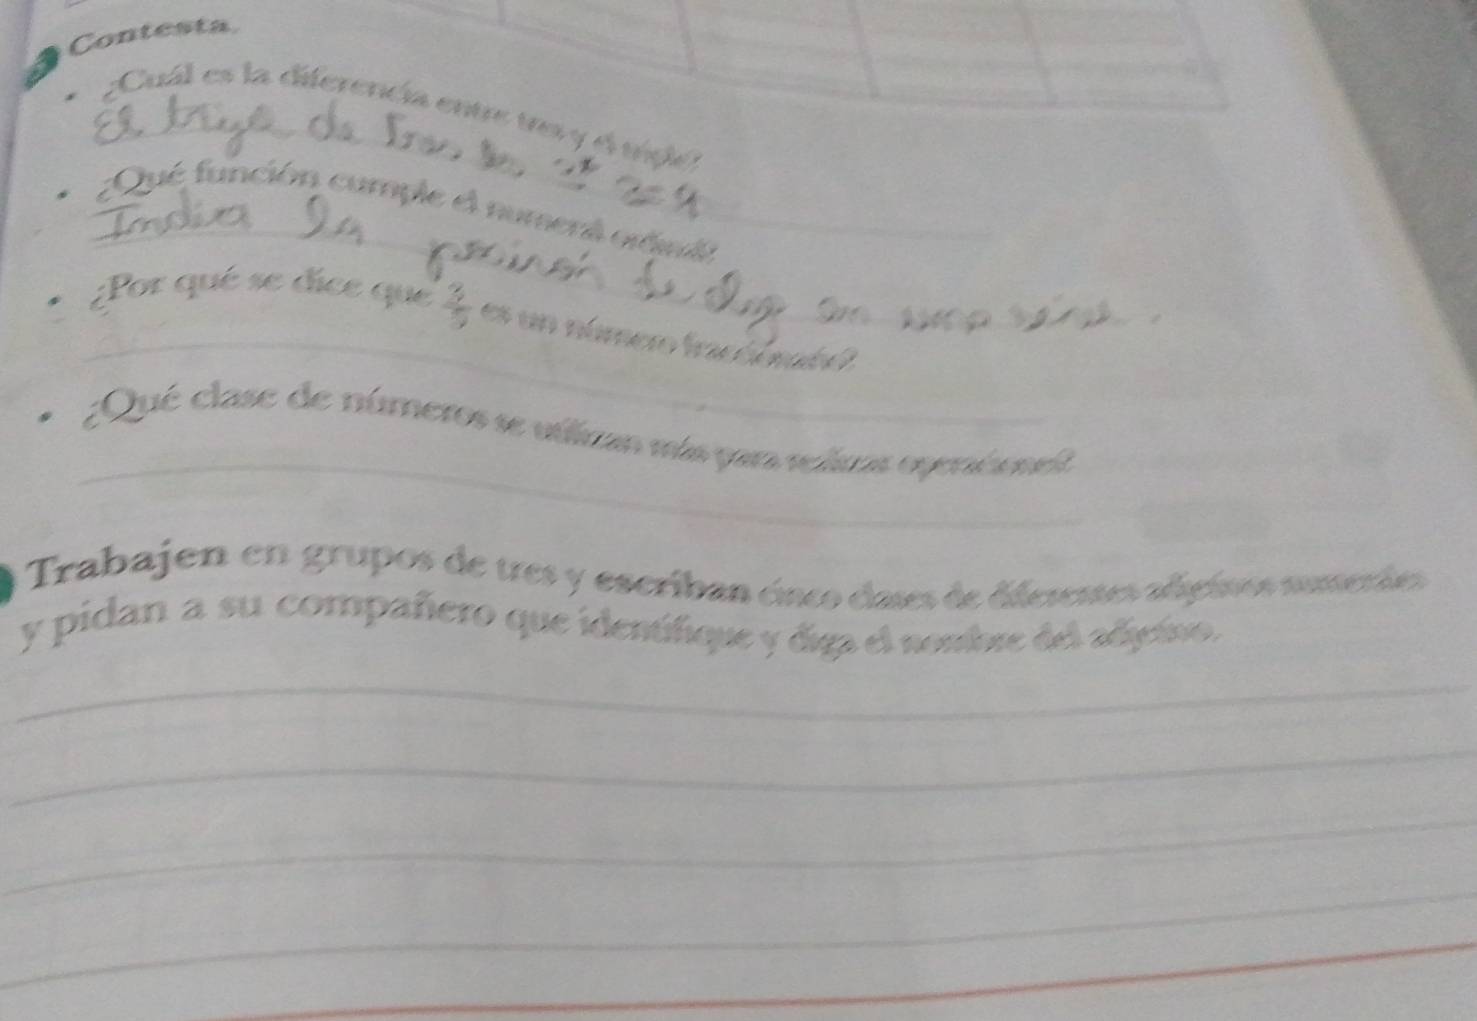 Contesta.
¿Cuál es la diferencia entre tres y el triple?
El triple de tres
¿Qué función cumple el numeral ordinal?
Indica la posición de
¿Por qué se dice que es un número fraccionario?
¿Qué clase de números se utilizan más para realizar operaciones?
Trabajen en grupos de tres y escriban cinco clases de diferentes adjetivos numerales
y pidan a su compañero que identifique y diga el nombre del adjetivo.